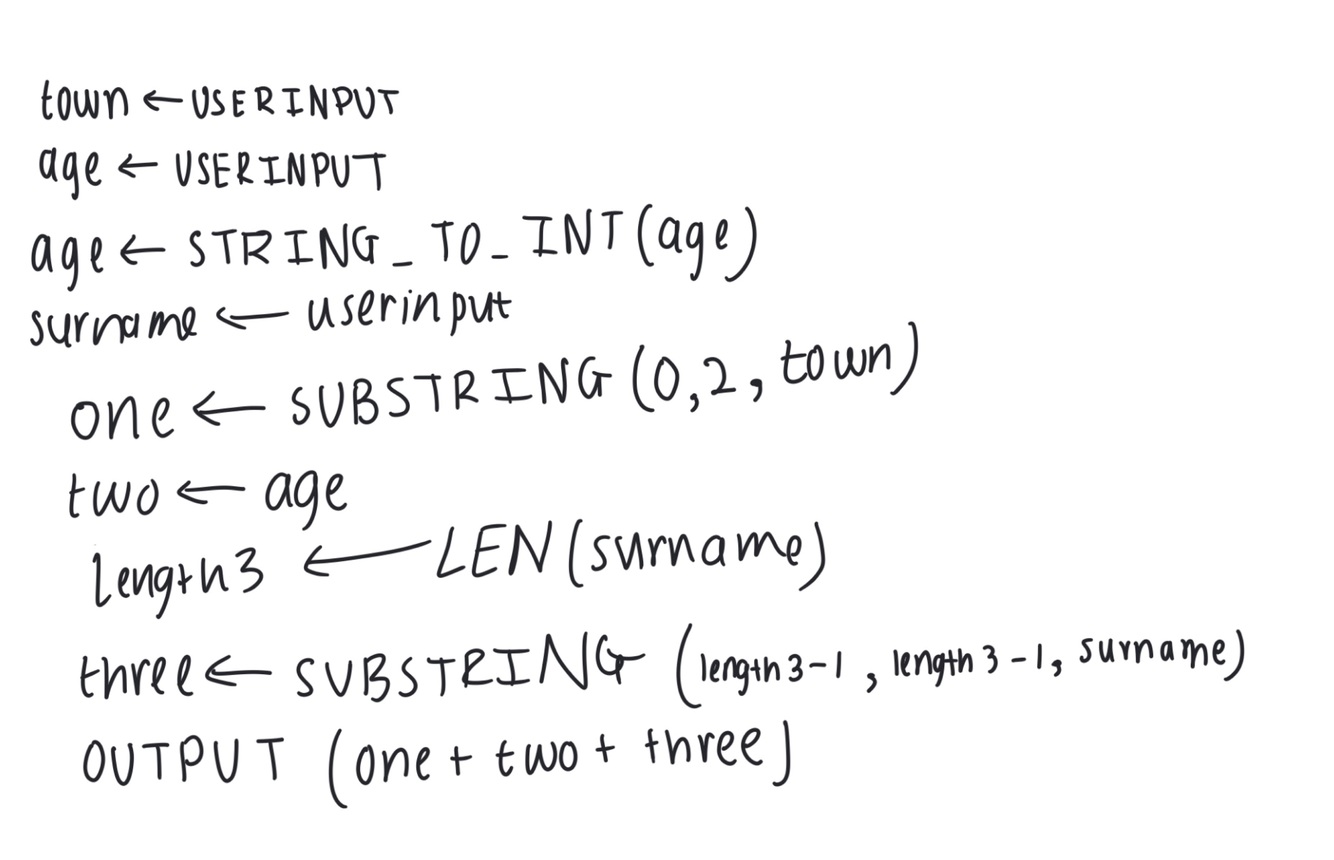 town ← USERINPUT
age ← USERINPUT
age ← STRING_TO_INT(age)
surname ← userinput
one ← SUBSTRING(0,2, town)
two ← age
length3 ← LEN(surname)
three ← SUBSTRING (length3-1, length3-1, surname)
OUTPUT (one + two + three)